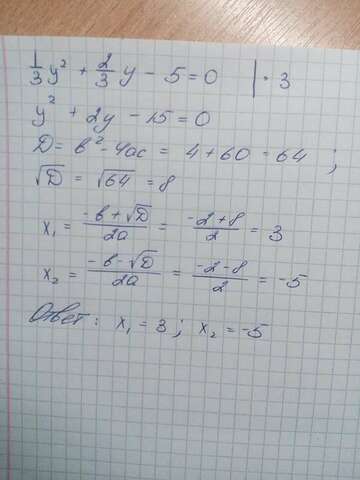 1/3 y² + 2/3 y - 5 = 0 | · 3
y² + 2y - 15 = 0
D = b² - 4ac = 4 + 60 = 64 ;
√D = √64 = 8
x₁ = (-b + √D)/2a = (-2 + 8)/2 = 3
x₂ = (-b - √D)/2a = (-2 - 8)/2 = -5
Ответ : x₁ = 3 ; x₂ = -5